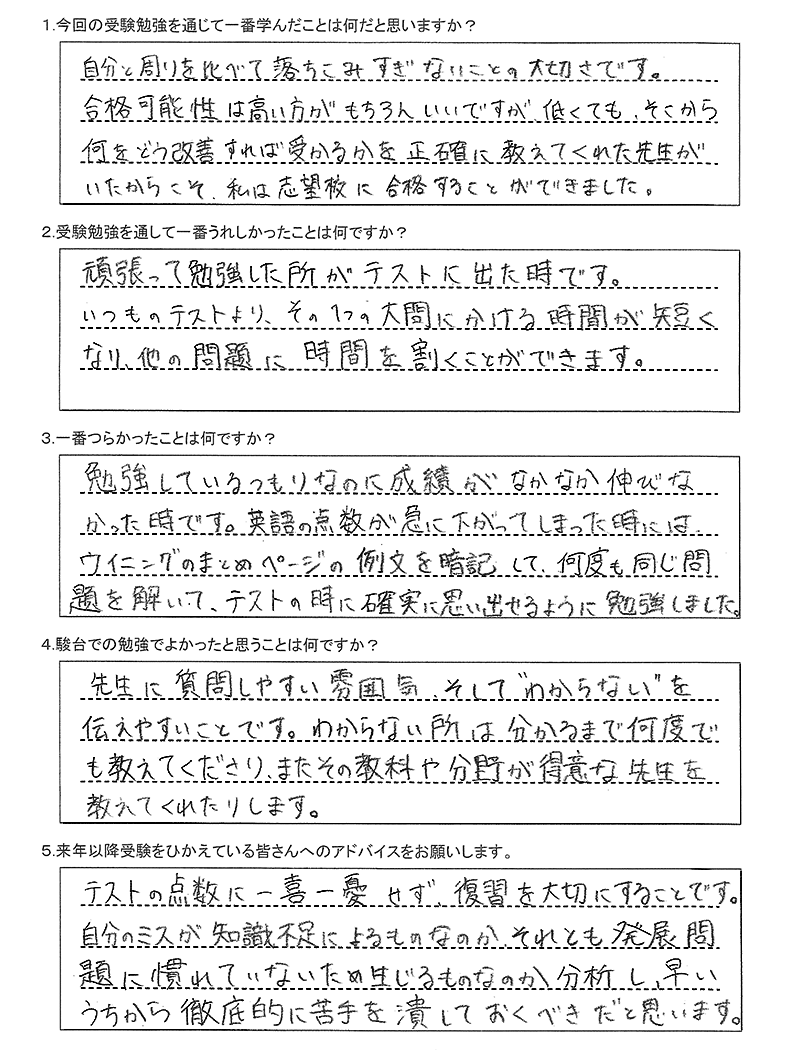 1.今回の受験勉強を通じて一番学んだことは何だと思いますか？
自分と周りを比べて落ちこみすぎないことの大切さです。
合格可能性は高い方がもちろんいいですが、低くても、そこから
何をどう改善すれば受かるかを正確に教えてくれた先生が
いたからこそ、私は志望校に合格することができました。
2.受験勉強を通して一番うれしかったことは何ですか？
頑張って勉強した所がテストに出た時です。
いつものテストより、その1つの大問にかける時間が短く
なり、他の問題に時間を割くことができます。
3.一番つらかったことは何ですか？
勉強しているつもりなのに成績がなかなか伸びな
かった時です。英語の点数が急に下がってしまった時には、
ウイニングのまとめページの例文を暗記して、何度も同じ問
題を解いて、テストの時に確実に思い出せるように勉強しました。
4.駿台での勉強でよかったと思うことは何ですか？
先生に質問しやすい雰囲気、そして"わからない"を
伝えやすいことです。わからない所は分かるまで何度で
も教えてくださり、またその教科や分野が得意な先生を
教えてくれたりします。
5.来年以降受験をひかえている皆さんへのアドバイスをお願いします。
テストの点数に一喜一憂せず、復習を大切にすることです。
自分のミスが知識不足によるものなのか、それとも発展問
題に慣れていないため生じるものなのか、分析し、早い
うちから徹底的に苦手を潰しておくべきだと思います。